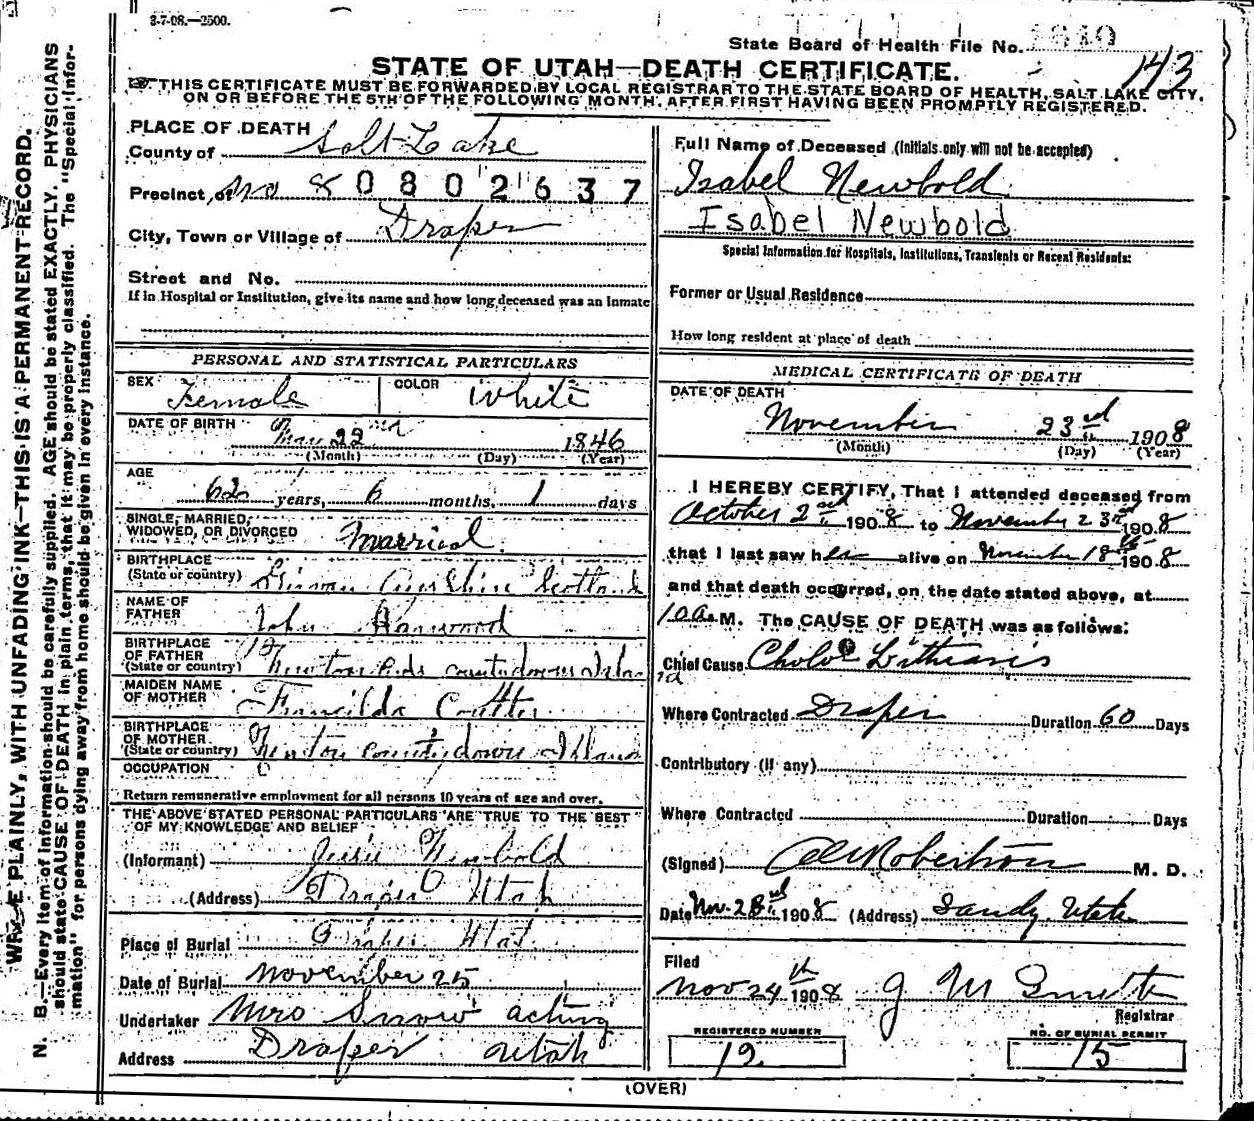 3-7-08.—2500.
State Board of Health File No. 1840
143
STATE OF UTAH—DEATH CERTIFICATE.
THIS CERTIFICATE MUST BE FORWARDED BY LOCAL REGISTRAR TO THE STATE BOARD OF HEALTH, SALT LAKE CITY,
ON OR BEFORE THE 5TH OF THE FOLLOWING MONTH, AFTER FIRST HAVING BEEN PROMPTLY REGISTERED.
WRITE PLAINLY, WITH UNFADING INK—THIS IS A PERMANENT RECORD.
N. B.—Every item of information should be carefully supplied. AGE should be stated EXACTLY. PHYSICIANS
should state CAUSE OF DEATH in plain terms, that it may be properly classified. The "Special Infor-
mation" for persons dying away from home should be given in every instance.
PLACE OF DEATH
County of Salt Lake
Precinct of No 8 0802637
City, Town or Village of Draper
Street and No.
If in Hospital or Institution, give its name and how long deceased was an inmate
PERSONAL AND STATISTICAL PARTICULARS
SEX Female COLOR White
DATE OF BIRTH May 22nd 1846
(Month) (Day) (Year)
AGE
62 years, 6 months, 1 days
SINGLE, MARRIED,
WIDOWED, OR DIVORCED Married
BIRTHPLACE
(State or country) Scotland
NAME OF
FATHER John
BIRTHPLACE
OF FATHER
(State or country) Newton
MAIDEN NAME
OF MOTHER
BIRTHPLACE
OF MOTHER
(State or country) Newton county down
OCCUPATION
Return remunerative employment for all persons 10 years of age and over.
THE ABOVE STATED PERSONAL PARTICULARS ARE TRUE TO THE BEST
OF MY KNOWLEDGE AND BELIEF
(Informant) Newbold
(Address) Draper Utah
Place of Burial Draper Utah
Date of Burial November 25
Undertaker Mrs Snow acting
Address Draper Utah
Full Name of Deceased (Initials only will not be accepted)
Isabel Newbold
Isabel Newbold
Special Information for Hospitals, Institutions, Transients or Recent Residents:
Former or Usual Residence
How long resident at place of death
MEDICAL CERTIFICATE OF DEATH
DATE OF DEATH
November 23rd 1908
(Month) (Day) (Year)
I HEREBY CERTIFY, That I attended deceased from
October 2nd 1908 to November 23rd 1908
that I last saw her alive on November 18th 1908
and that death occurred, on the date stated above, at
10 a. M. The CAUSE OF DEATH was as follows:
Chief Cause Chole Lithiasis
Where Contracted Draper Duration 60 Days
Contributory (if any)
Where Contracted Duration Days
(Signed) Robertson M. D.
Date Nov. 1908 (Address) Sandy Utah
Filed
Nov 24th 1908 J M Smith
Registrar
REGISTERED NUMBER
19
NO. OF BURIAL PERMIT
15
(OVER)